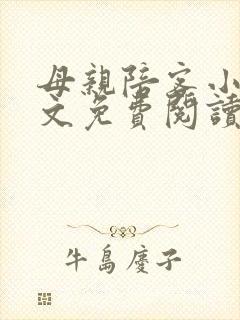 母親陪客小
文免費閱讀
牛島慶子